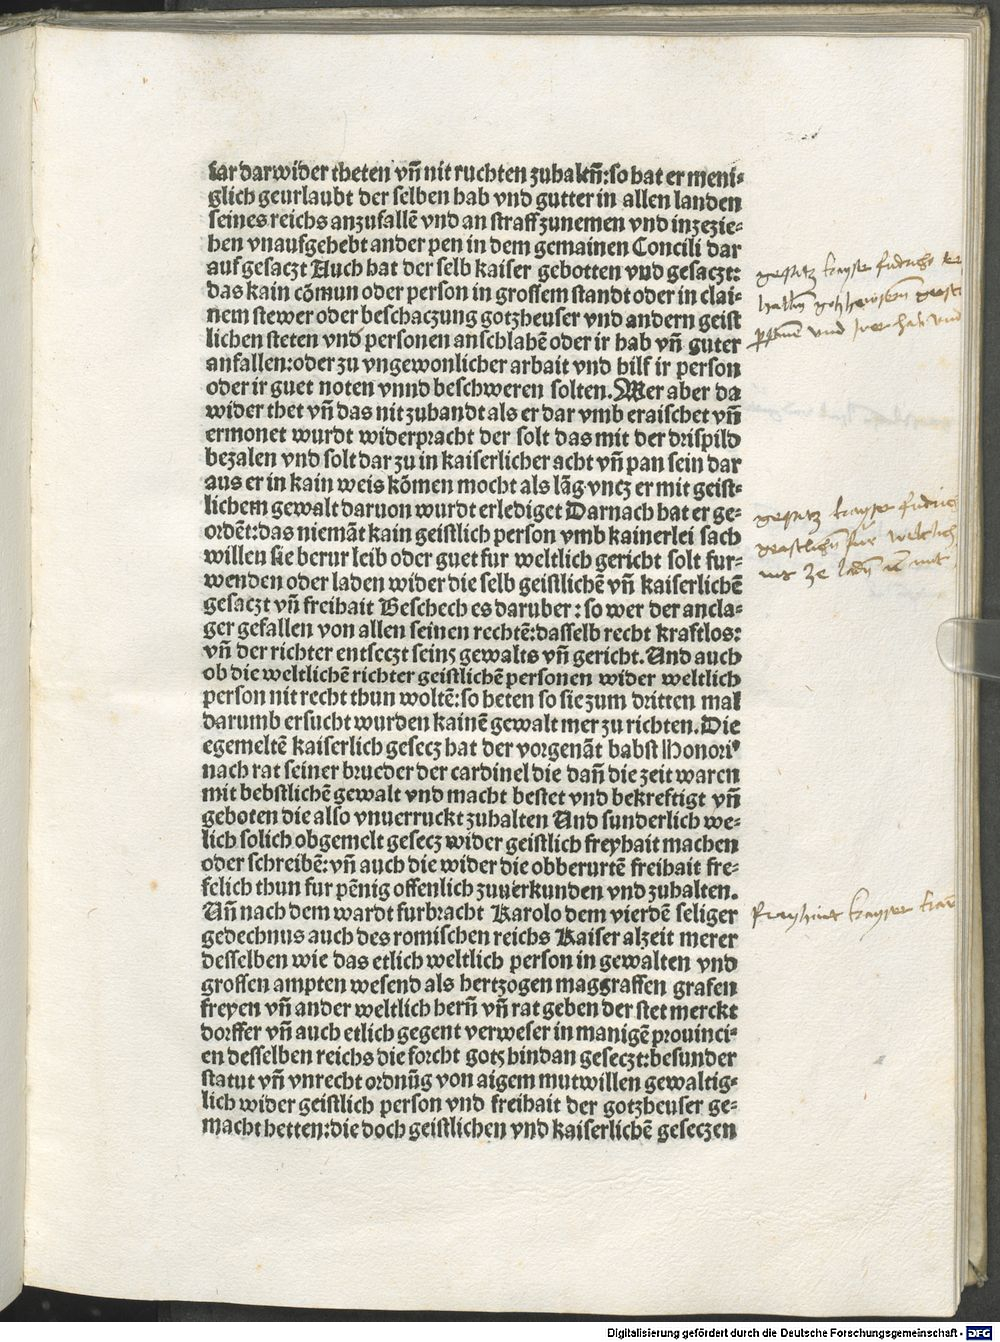 dar dar wider theten vñ nit ruchten zuhaltñ: so hat er meni⸗
glich geurlaubt der selben hab vnd gutter in allen landen
seines reichs anzufallē vnd an straff zunemen vnd in zezie⸗
hen vnaufgehebt ander pen in dem gemainen Concili dar
auf gesaczt Auch hat der selb kaiser gebotten vnd gesaczt:
das kain cōmun oder person in grossem standt oder in clai⸗
nem stewer oder beschaczung gotzheuser vnd andern geist
lichen steten vnd personen anschlahē oder ir hab vñ guter
anfallen: oder zu vngewonlicher arbait vnd hilf ir person
oder ir guet noten vnnd beschweren solten. Wer aber da
wider thet vñ das nit zuhandt als er dar vmb eraischet vñ
ermonet wurdt widerpracht der solt das mit der drispild
bezalen vnd solt dar zu in kaiserlicher acht vñ pan sein dar
aus er in kain weis kōmen mocht als lāg vncz er mit geist⸗
lichem gewalt daruon wurdt erlediget Darnach hat er ge⸗
ordēt: das niemāt kain geistlich person vmb kainerlei sach
willen sie berur leib oder guet fur weltlich gericht solt fur⸗
wenden oder laden wider die selb geistlichē vñ kaiserlichē
gesaczt vñ freihait Beschech es daruber: so wer der ancla⸗
ger gefallen von allen seinen rechtē: dasselb recht kraftlos:
vñ der richter entseczt seins gewalts vñ gericht. Und auch
ob die weltlichē richter geistlichē personen wider weltlich
person nit recht thun woltē: so heten so sie zum dritten mal
darumb ersucht wurden kainē gewalt mer zu richten. Die
egemeltē kaiserlich gesecz hat der vorgenāt babst Honoriꝰ
nach rat seiner brueder der cardinel die dañ die zeit waren
mit bebstlichē gewalt vnd macht bestet vnd bekreftigt vñ
geboten die also vnuerruckt zuhalten Und sunderlich we⸗
lich solich obgemelt gesecz wider geistlich freyhait machen
oder schreibē: vñ auch die wider die obberurtē freihait fre⸗
felich thun fur pēnig offenlich zuuerkunden vnd zuhalten.
Uñ nach dem wardt furbracht Karolo dem vierdē seliger
gedechnus auch des romischen reichs Kaiser alzeit merer
desselben wie das etlich weltlich person in gewalten vnd
grossen ampten wesend als hertzogen maggraffen grafen
freyen vñ ander weltlich herñ vñ rat geben der stet merckt
dorffer vñ auch etlich gegent verweser in manigē prouinci⸗
en desselben reichs die forcht gots hindan geseczt: besunder
statut vñ vnrecht ordnūg von aigem mutwillen gewaltig⸗
lich wider geistlich person vnd freihait der gotzheuser ge⸗
macht hetten: die doch geistlichen vnd kaiserlichē geseczen
gesatz kayser fridrichs
gesatz kayser fridrich
freyhait kayser kar
Digitalisierung gefördert durch die Deutsche Forschungsgemeinschaft - DFG